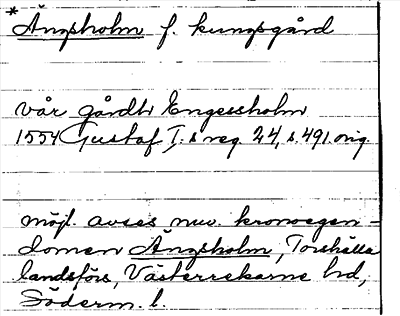 * Ängsholm f. kungsgård
vår gårdh Engessholm
1554 Gustaf I:s reg. 24, s. 491. orig.
möjl. avses nuv. kronoegen-
domen Ängsholm, Torshälla
landsförs, Västerrekarne hd,
Söderm. l.